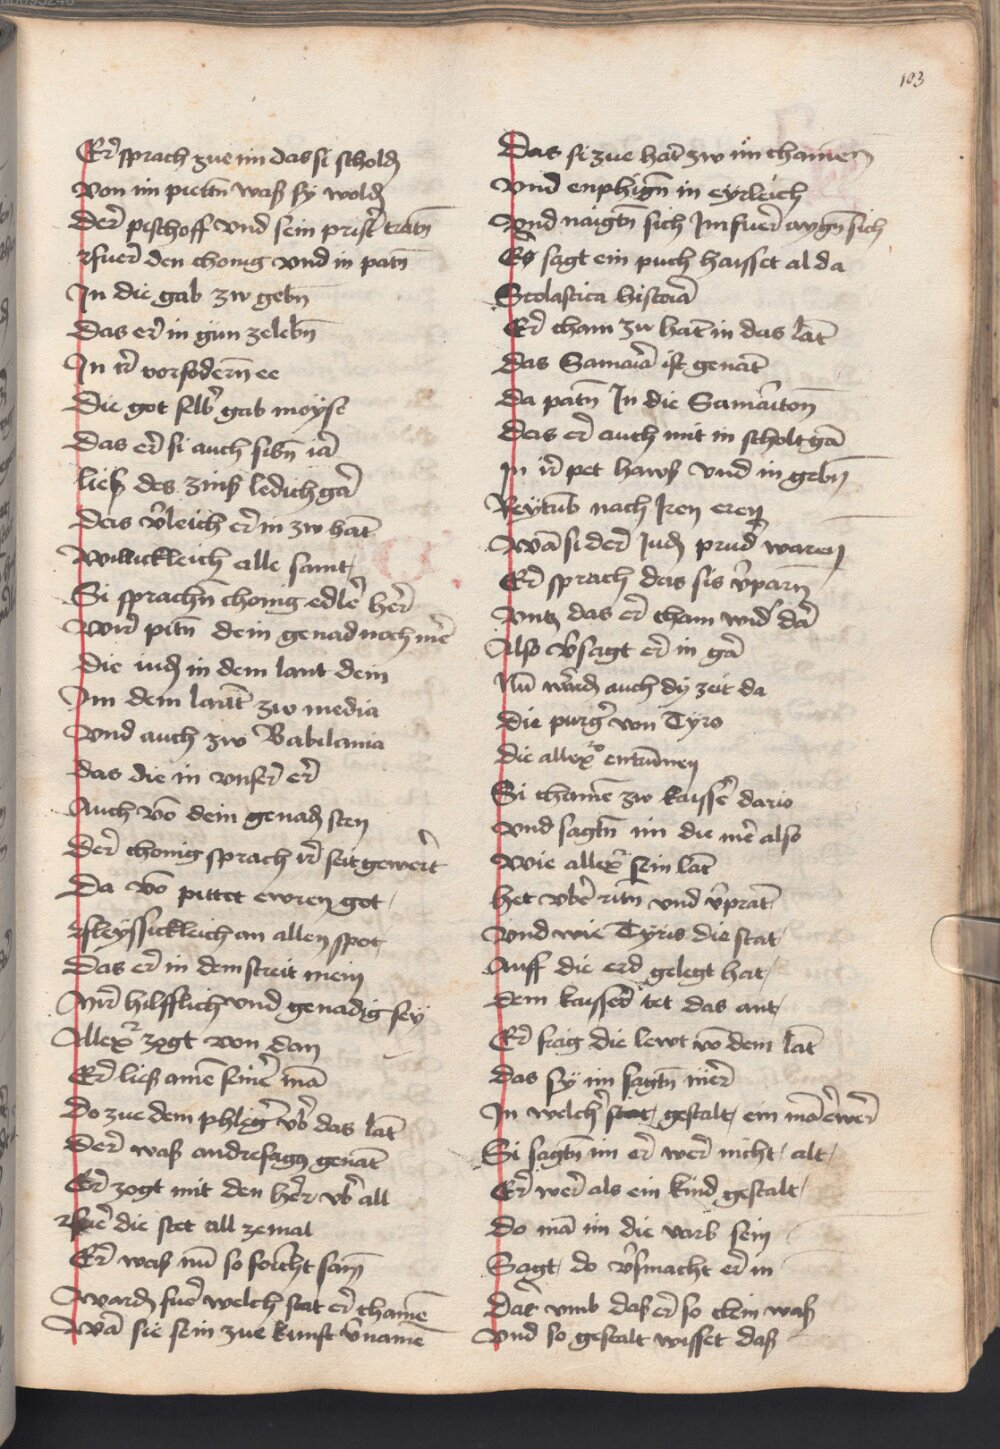 103
Er sprach zue im das si schold̄
Von im pietn̄ waß sy wold̄
Der pischoff vnd sein prist̄ tratn̄
Fuer den chonig vnd in patn̄
In die gab zw gebn̄
Das er in gun zelebn̄
In ir vorfodern̄ ee
Die got selb̄ gab moyse
Das er si auch sibn̄ iar̄
ließ des zinß ledich gar̄
Das v̄leich er in zw hant̄
Willickleich alle samt
Si sprachn̄ chonig edler her
Wir pitn̄ dein genad noch mēr
Die iud̄ in dem lant dein
Im dem laūt zw media
Vnd auch zw Babilania
das die in vnser er
Auch vō dein genad̄ sten
Der chonig sprach ir seit gewert
Da vō pittet ewren got
fleyssickleich an allen spot
Das er in dem streit mein
Mir hilfflich vnd genadig sey
Allex̄ zogt von dan
Er ließ ainē seinē mā
Do zue dem phleḡ vb̄ das lāt
Der waß andresagus genāt
Er zogt mit den her vb̄ all
Fuer die stet all zemal
Er waß nū so forcht sam̄
Ward̄ fuer welch stat er chamē
Wā sie sein zue kunft v̄namē
Das si zue hāt zw im chamen
Vnd enphign̄ in eyrleich
Vnd naigtn̄ sich Im fuer aygn̄ sich
Es sagt ein puch haisset alda
Scolastica historia
Er cham zu hāt in das lāt
Das Samaria ist genāt
da patn̄ In die Samariton̄
das er auch mit in scholt gā
In ir pet hawß vnd in gebn̄
Reytūb nach Iren eren
Wā si der Iud̄ prud̄ waren
Er sprach das sis v̄parn̄
Vntz das er cham wid̄ dar
Also v̄sagt er in gar
Nū ward̄ auch dy zeit da
Die purḡ von Tyro
die allex̄ro entrūnen
Si chamē zw kaisser dario
Vnd sagtn̄ im die mēr also
Wie allex̄ sein lāt
het vber ritn̄ vnd v̄prāt
Vnd wie Tyrus die stat
Auff die erd gelegt hat
dem kaisser tet das ant
Er frag die lewt vō dem lāt
das sy im sagtn̄ mer
In welch̄ stat gestalt ein mā er wer
Si sagtn̄ im er wer nicht alt
Er wer als ein kind gestalt
Do mā im die varb sein
Sagt do v̄smacht er in
Dar vmb daß er so clein waß
Vnd so gestalt wisset daß